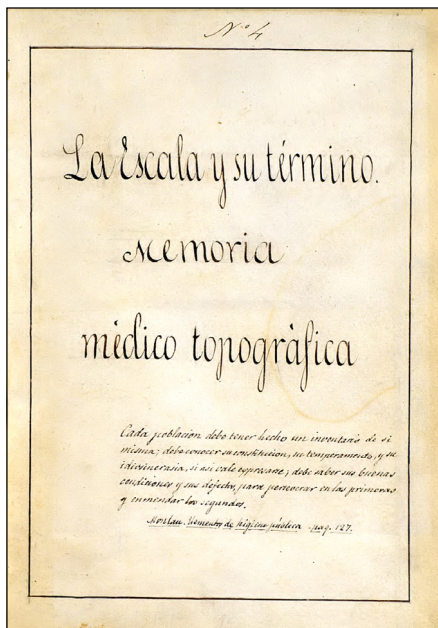 Nº 4
La Escala y su término.
Memoria
médico topográfica
Cada poblacion debe tener hecho un inventario de si
misma; debe conocer su constitucion, su temperamento, y su
idiosincrasia, si asi vale expresarse; debe saber sus buenas
condiciones y sus defectos, para perseverar en las primeras
y enmendar los segundos.
Monlau. Elementos de higiene pública - pag. 127.